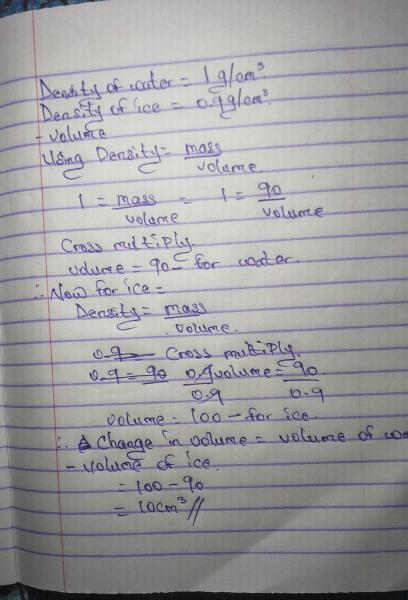 Density of water = 1 g/cm³.
Density of ice = 0.9g/cm³.
- volume
Using Density = mass
volume.
1 = mass = 1 = 90
volume volume
Cross multiply.
volume = 90 - for water.
∴ Now for ice =
Density = mass
volume.
0.9 Cross multiply.
0.9 = 90 0.9volume = 90
0.9 0.9
volume = 100 - for ice.
∴ Change in volume = volume of
- volume of ice.
= 100 - 90
= 10cm³//